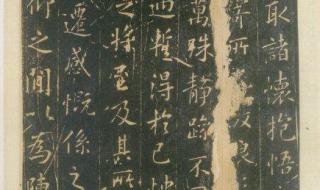 取諸懷抱悟
寄所
萬殊靜躁不
遇蹔得於己怏
之將至及其所
遷感慨係之
仰之間以為陳